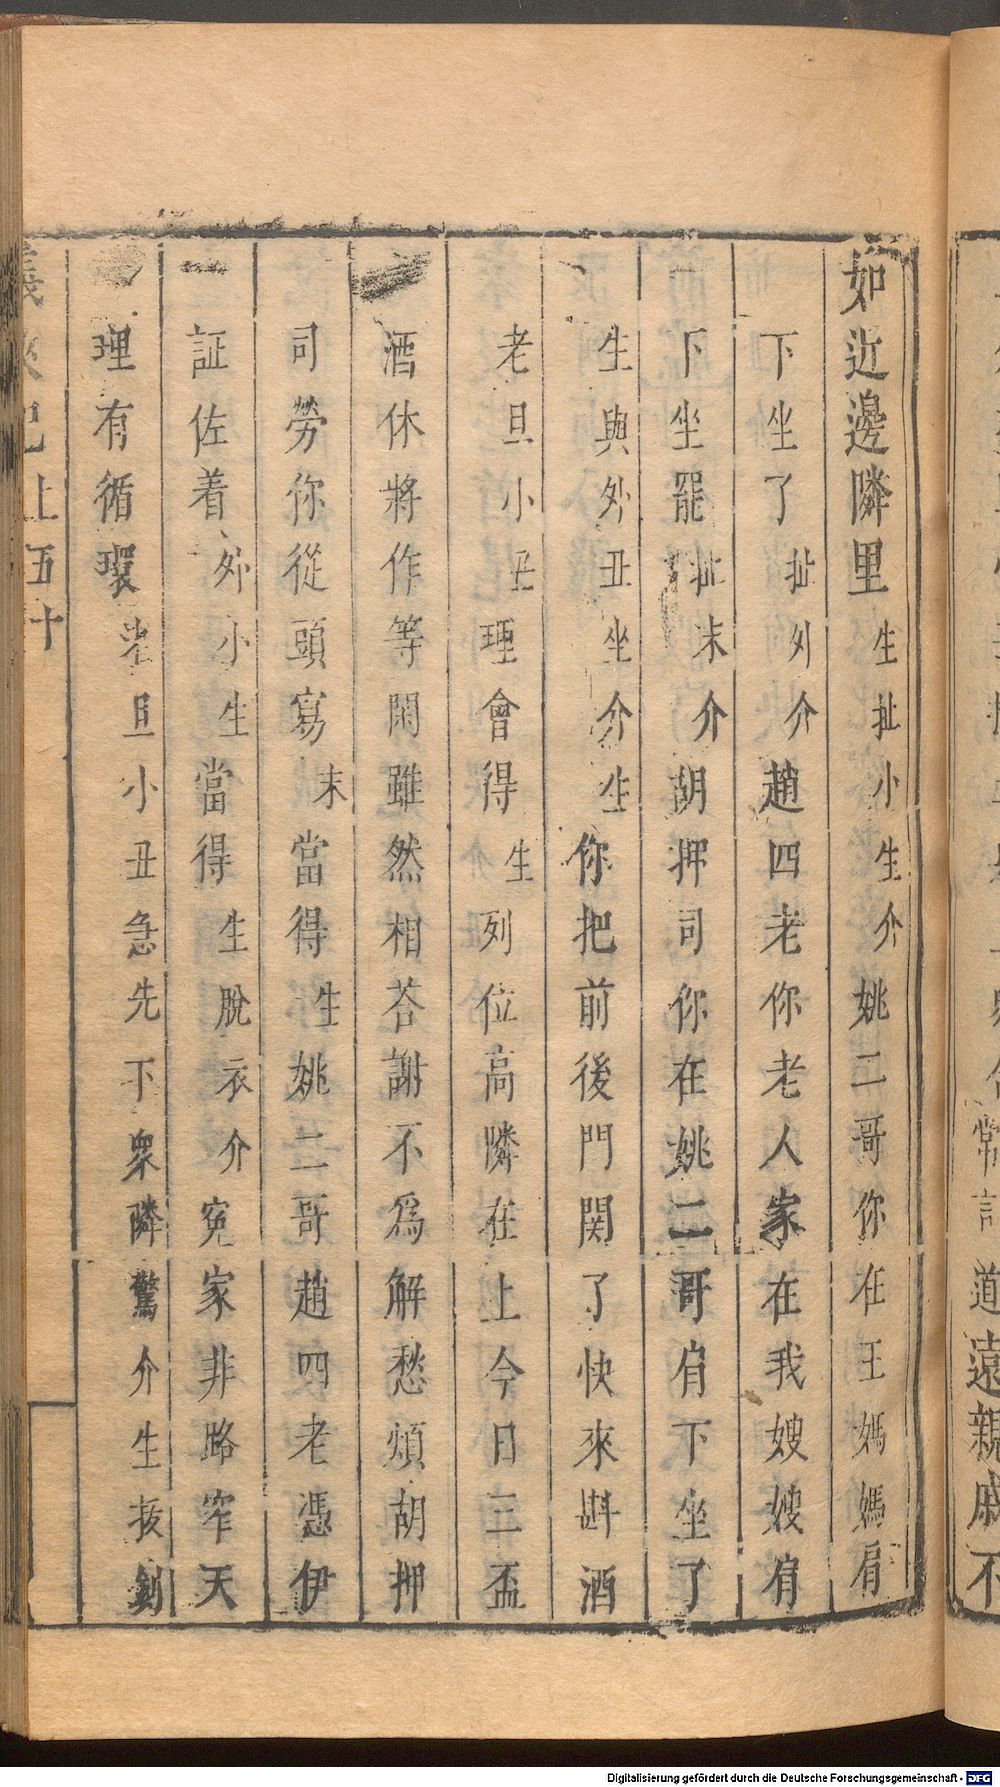 如近邊隣里生扯小生介姚二哥你在王媽媽肩
下坐了扯外介趙四老你老人家在我嫂嫂肩
下坐罷扯末介胡押司你在姚二哥肩下坐了
生與外丑坐介介生你把前後門関了快來斟酒
老旦小丑理會得生列位高隣在上今日三盃
酒休將作等閑雖然相荅謝不爲解愁煩胡押
司勞你從頭寫末當得生姚二哥趙四老憑伊
証佐着外小生當得生脫衣介寃家非路窄天
理有循環老旦小丑急先下衆隣驚介生拔劍
義俠記上五十
常言道遠親戚不
Digitalisierung gefördert durch die Deutsche Forschungsgemeinschaft - DFG